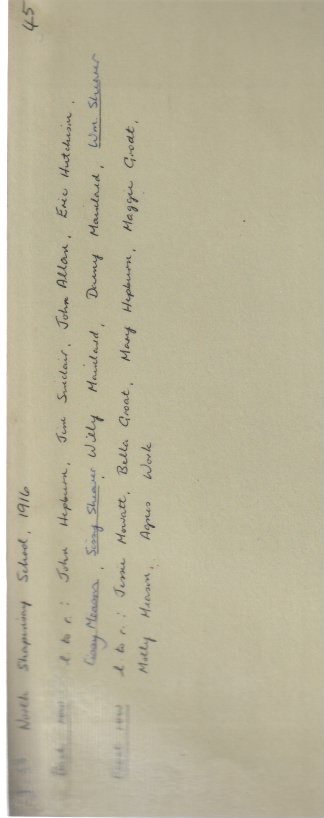 45
North Shapinsay School, 1916
Back row l. to r.: John Hepburn, Jim Sinclair, John Allan, Eric Hutchison,
Cissy Meason, Sissy Shearer, Willy Mainland, Danny Mainland, Wm. Shearer
Front row l. to r.: Jessie Mowatt, Bella Groat, Mary Hepburn, Maggie Groat,
Molly Meason, Agnes Work